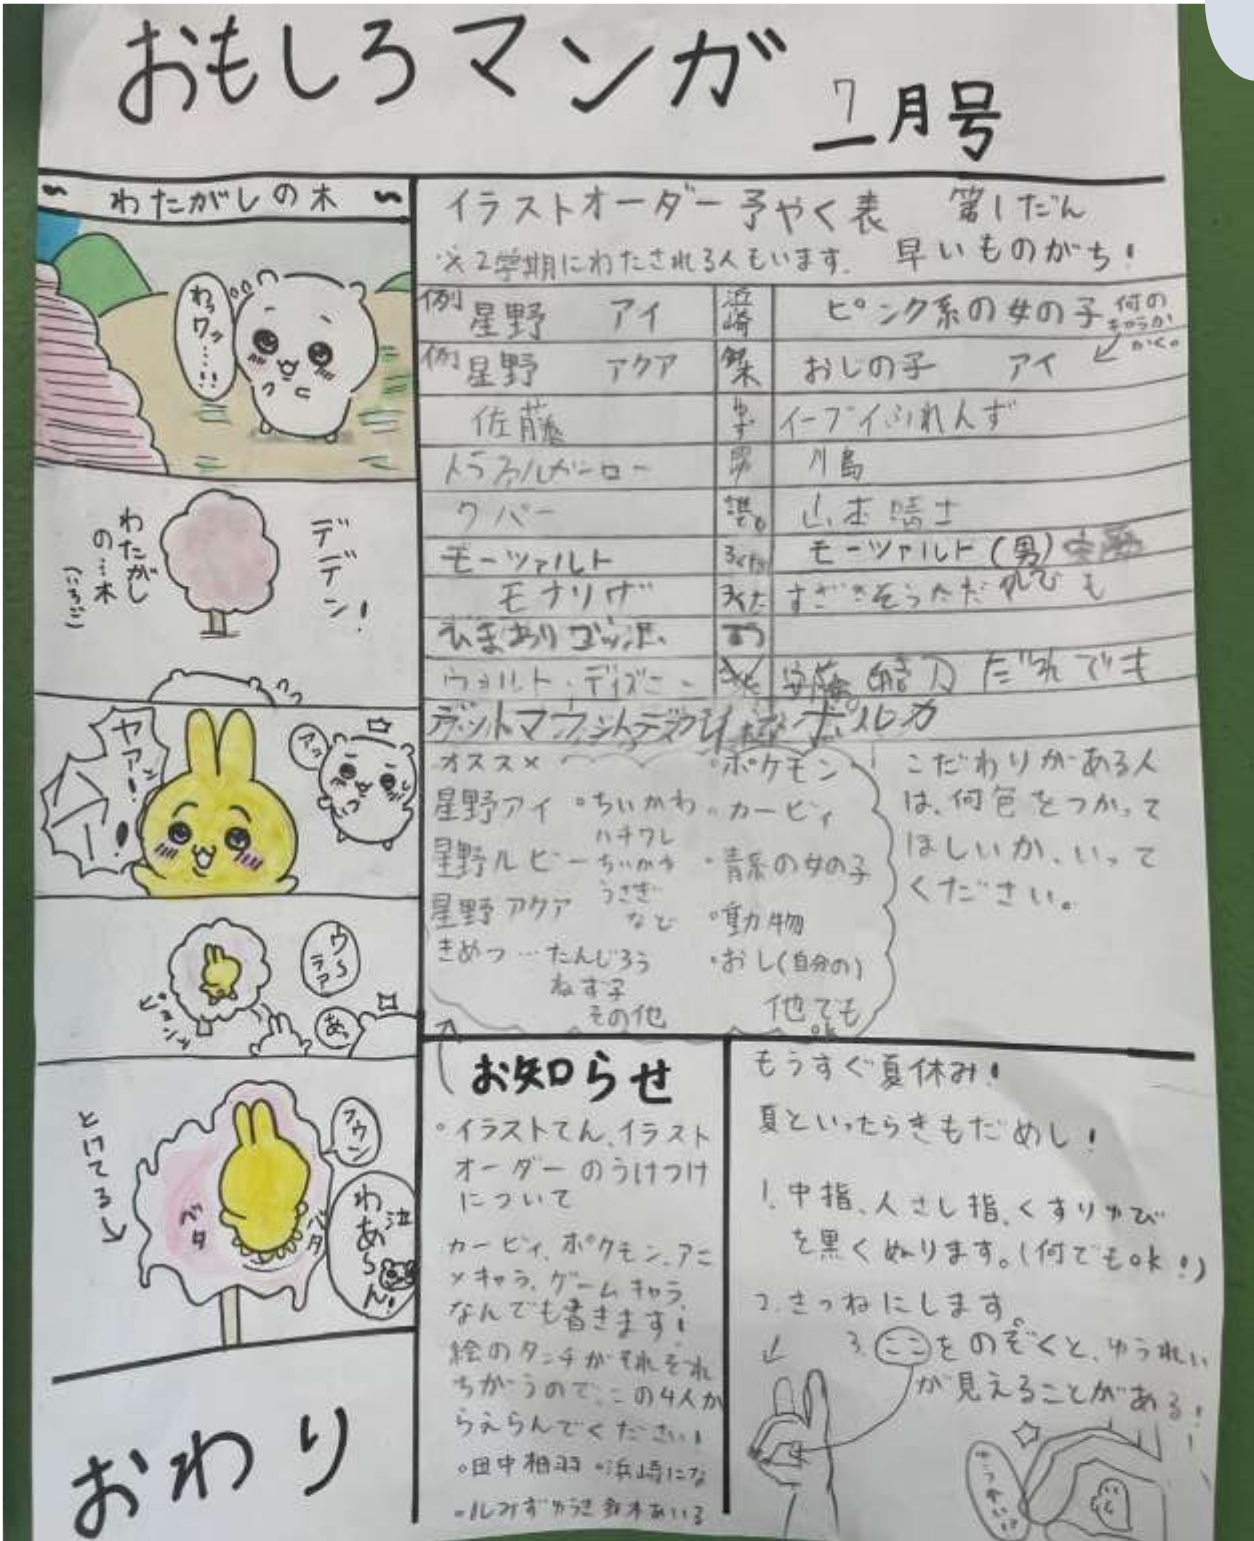 おもしろマンガ
7月号
〜 わたがしの木 〜
わっワッ……!!
デデデン!
わたがし
の…木
(いちご)
ヤアン!
アッ
ウ〜ラァ
ピョンッ
あっ
とけてる
フウン
ベタ
ベタ
わあ〜ん!
泣
おわり
イラストオーダー予やく表 第1だん
※2学期にわたされる人もいます。 早いものがち!
例 星野 アイ 浜崎 ピンク系の女の子
何のキャラかかく。
例 星野 アクア おしの子 アイ
佐藤 イーブイふれんず
トラファルガーロー 男 川島
クバー 山本晴士
モーツァルト モーツァルト(男)
モナリザ だれでも
ウォルト・ディズニー だれでも
オススメ
星野アイ
星野ルビー
星野アクア
きめつ…たんじろう
ねず子
その他
・ちいかわ
ハチワレ
ちいかわ
うさぎ
など
・ポケモン
・カービィ
・青系の女の子
・動物
・おし(自分の)
他でもok
こだわりがある人
は、何色をつかって
ほしいか、いって
ください。
お知らせ
・イラストてん、イラスト
オーダーのうけつけ
について
カービィ、ポケモン、アニ
メキャラ、ゲームキャラ、
なんでも書きます!
絵のタッチがそれぞれ
ちがうので、この4人か
らえらんでください!
・田中柚羽 ・浜崎にな
もうすぐ夏休み!
夏といったらきもだめし!
1.中指、人さし指、くすりゆび
を黒くぬります。(何でもok!)
2.きつねにします。
3.ここをのぞくと、ゆうれい
が見えることがある!